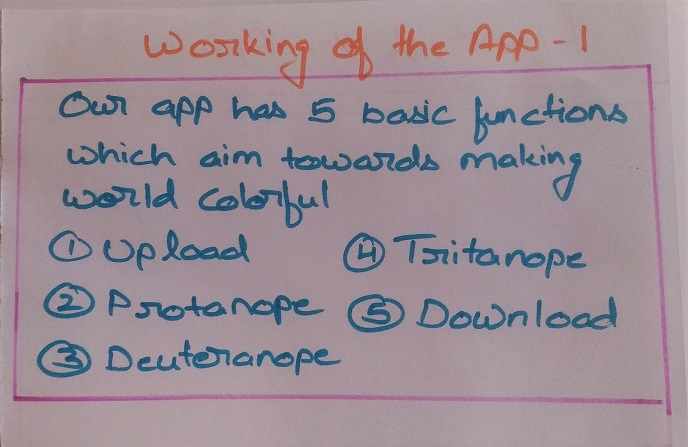 Working of the App - 1
Our app has 5 basic functions
which aim towards making
world colorful
① Upload
② Protanope
③ Deuteranope
④ Tritanope
⑤ Download